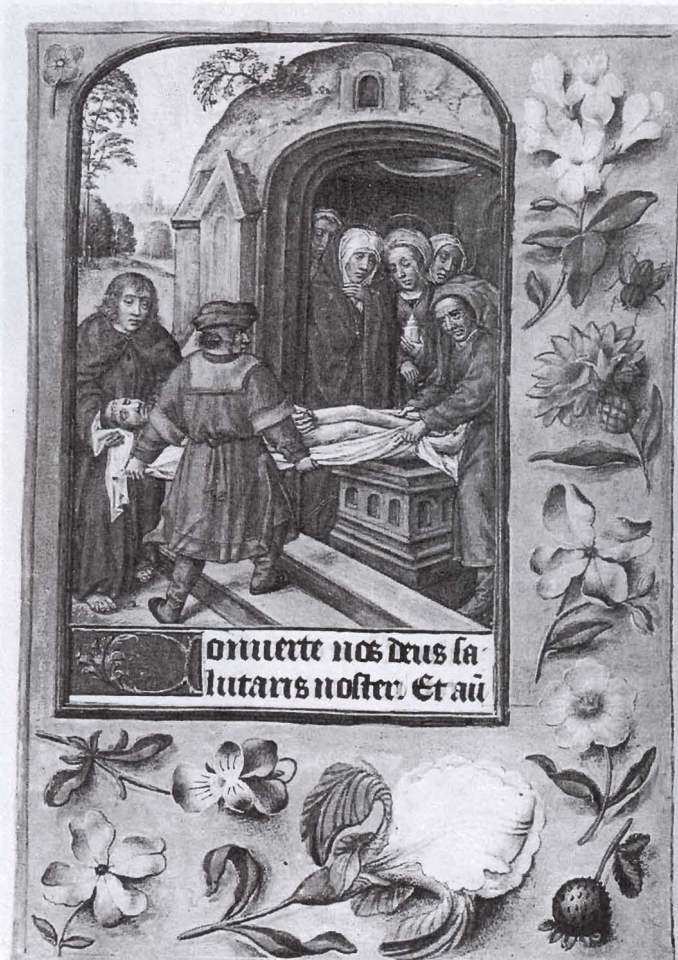 Conuerte nos deus sa-
lutaris noster. Et aū